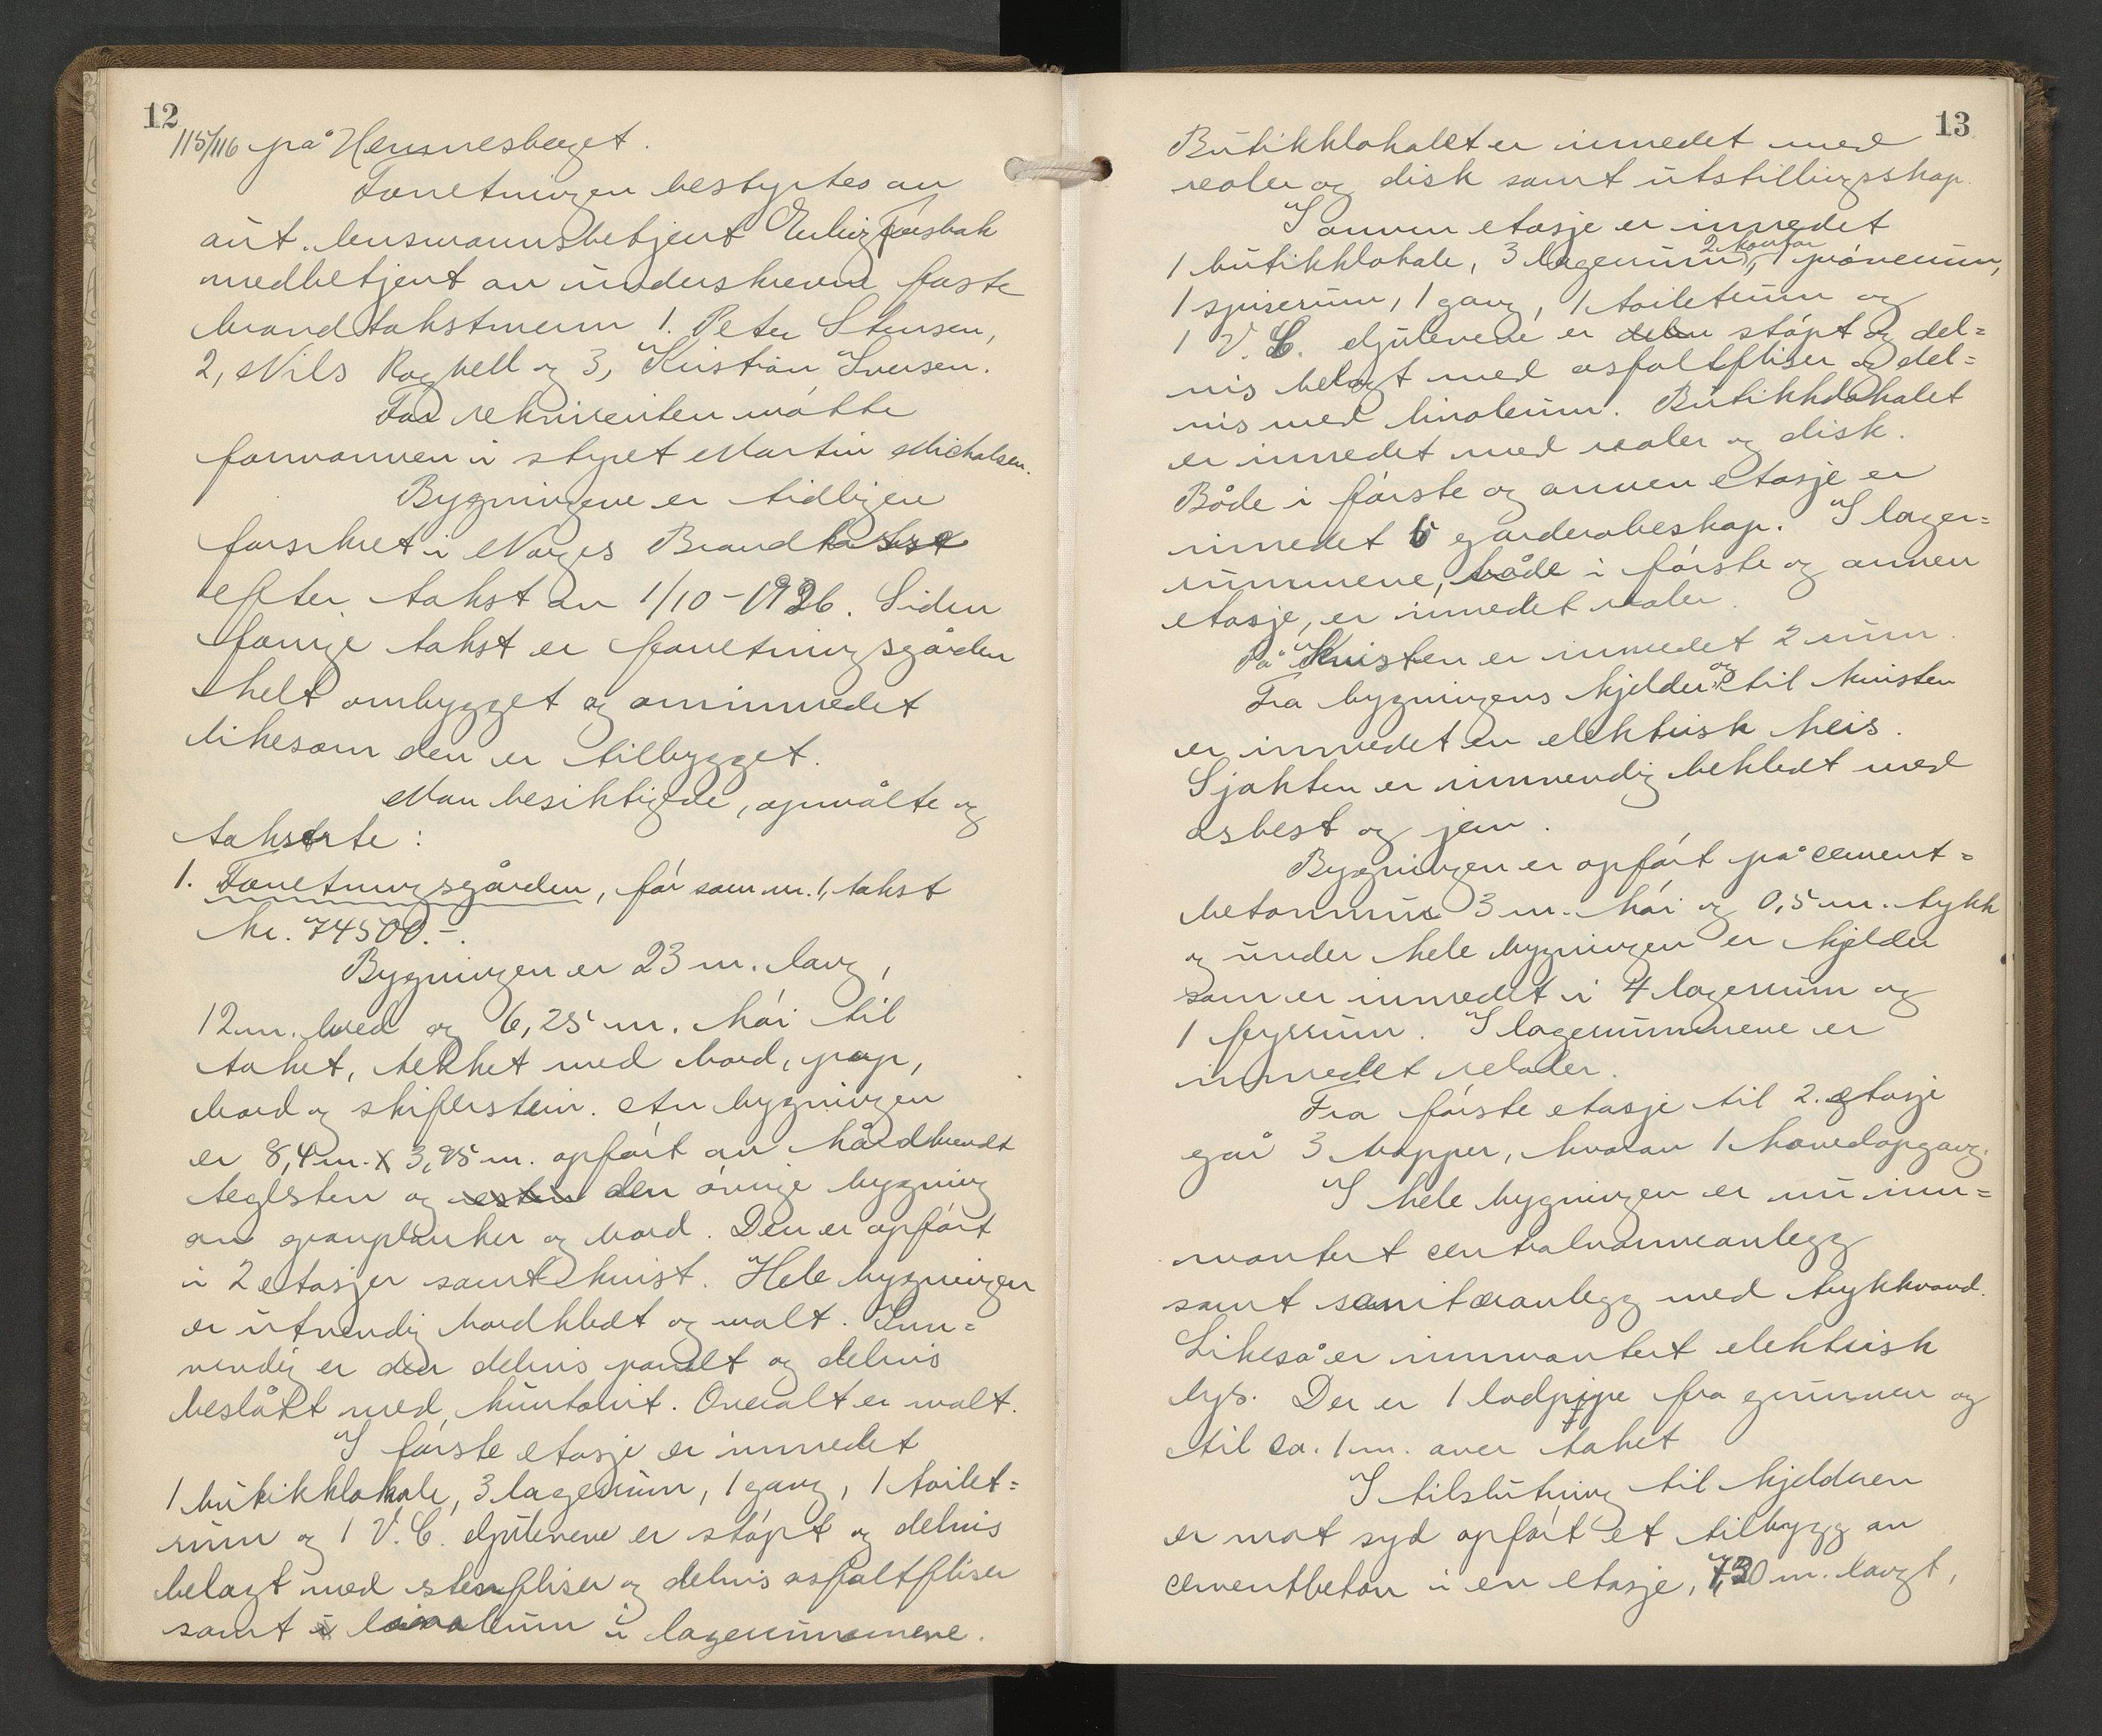 12
115/116 på Hemnesberget.
Forretningen bestyrtes av
aut. lensmannsbetjent Erling Forsbak
medbetjent av underskrevne faste
brandtakstmenn 1. Peter Stensen,
2, Nils Rogvell og 3, Kristian Iversen.
For rekvirenten møtte
formannen i styret Martin Michalsen.
Bygningene er tidligere
forsikret i Norges Brandkasse
efter takst av 1/10-1926. Siden
forrige takst er forretningsgården
helt ombygget og ominnredet
likesom den er tilbygget.
Man besiktigede, opmålte og
takserte:
1. Forretningsgården, før som nr. 1, takst
kr. 74500.-.
Bygningen er 23 m. lang,
12 m. bred og 6,25 m. høi til
taket, tekket med bord, pap,
bord og skiferstein. Av bygningen
er 8,4 m. x 3,95 m. opført av hårdbrendt
teglsten og resten den øvrige bygning
av granplanker og bord. Den er opført
i 2 etasjer samt kvist. Hele bygningen
er utvendig bordkledt og malt. Inn=
vendig er den delvis panelt og delvis
beslått med huntonit. Overalt er malt.
I første etasje er innredet
1 butikklokale, 3 lagerrum, 1 gang, 1 toilet=
rum og 1 V. C. Gulvene er støpt og delvis
belagt med stenfliser og delvis asfaltfliser
samt i linoleum i lagerrummene.
13
Butikklokalet er innredet med
reoler og disk samt utstillingsskap.
I annen etasje er innredet
2 kontor
1 butikklokale, 3 lagerrum, 1 prøverum,
1 spiserum, 1 gang, 1 toiletrum og
1 V. C. Gulvene er delvis støpt og del=
vis belagt med asfaltfliser og del=
vis med linoleum. Butikklokalet
er innredet med reoler og disk.
Både i første og annen etasje er
innredet 6 garderobeskap. I lager=
rummene, både i første og annen
etasje, er innredet reoler.
På Kvisten er innredet 2 rum.
Fra bygningens kjelder og til kvisten
er innredet en elektrisk heis.
Sjakten er innvendig bekledt med
asbest og jern.
Bygningen er opført på cement=
betonmur 3 m. høi og 0,5 m. tykk
og under hele bygningen er kjelder
som er innredet i 4 lagerrum og
1 fyrrum. I lagerrummene er
innredet reoler.
Fra første etasje til 2. etasje
går 3 trapper, hvorav 1 hovedopgang.
I hele bygningen er nu inn=
montert centralvarmeanlegg
samt sanitæranlegg med trykkvand.
Likeså er innmontert elektrisk
lys. Der er 1 lodpipe fra grunnen og
til ca. 1 m. over taket
I tilslutning til kjelderen
er mot syd opført et tilbygg av
cementbeton i en etasje, 7,30 m. langt,